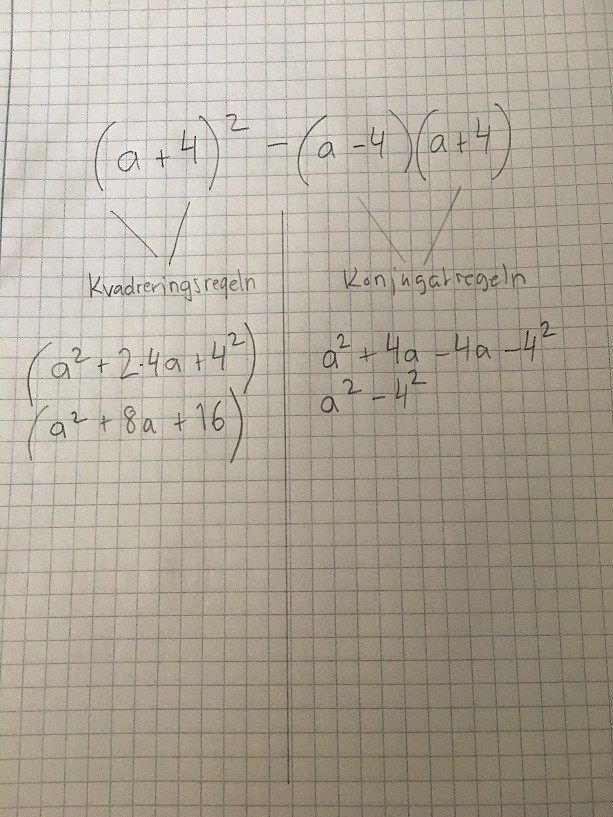 (a+4)² - (a-4)(a+4)
Kvadreringsregeln
(a² + 2·4a + 4²)
(a² + 8a + 16)
Konjugatregeln
a² + 4a - 4a - 4²
a² - 4²